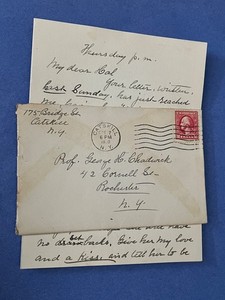 Thursday p.m.
My dear Hal
Your letter, written
last Sunday, has just reached
175 Bridge St.
Catskill
N.Y.
CATSKILL
6 PM
N.Y.
Prof. George H. Chadwick
42 Cornell St—
Rochester
N.Y.
no set backs, Give her my love
and a Kiss, and tell her to be